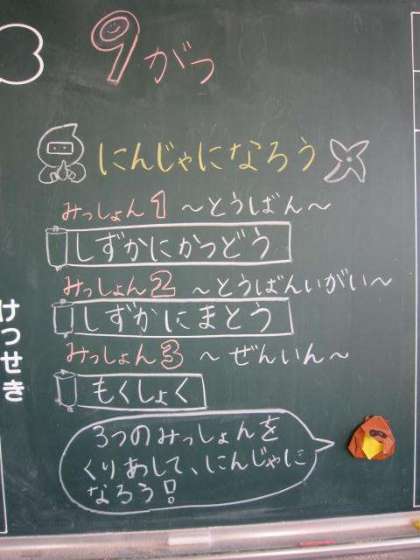 9がつ
にんじゃになろう
みっしょん1 ～とうばん～
しずかにかつどう
みっしょん2 ～とうばんいがい～
しずかにまとう
みっしょん3 ～ぜんいん～
もくしょく
3つのみっしょんを
くりあして、にんじゃに
なろう!
けっせき